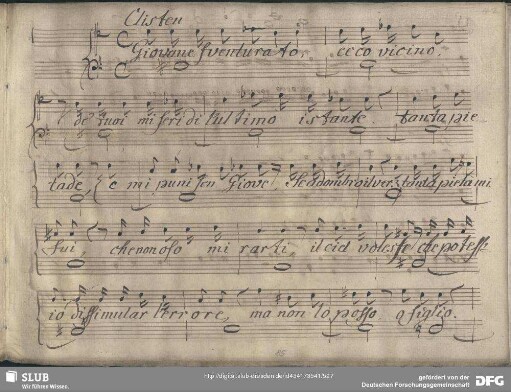 Clisten
Giovane sventurato, ecco vicino,
de tuoi miseri di l'ultimo istante tanta pie
tade, e mi punisca Giove, se adombro il ver, tanta pietà mi
fai, che non oso mirarti, il ciel volesse che potess
io dissimular l'errore, ma non lo posso o figlio.
SLUB
Wir führen Wissen.
gefördert von der
Deutschen Forschungsgemeinschaft
DFG